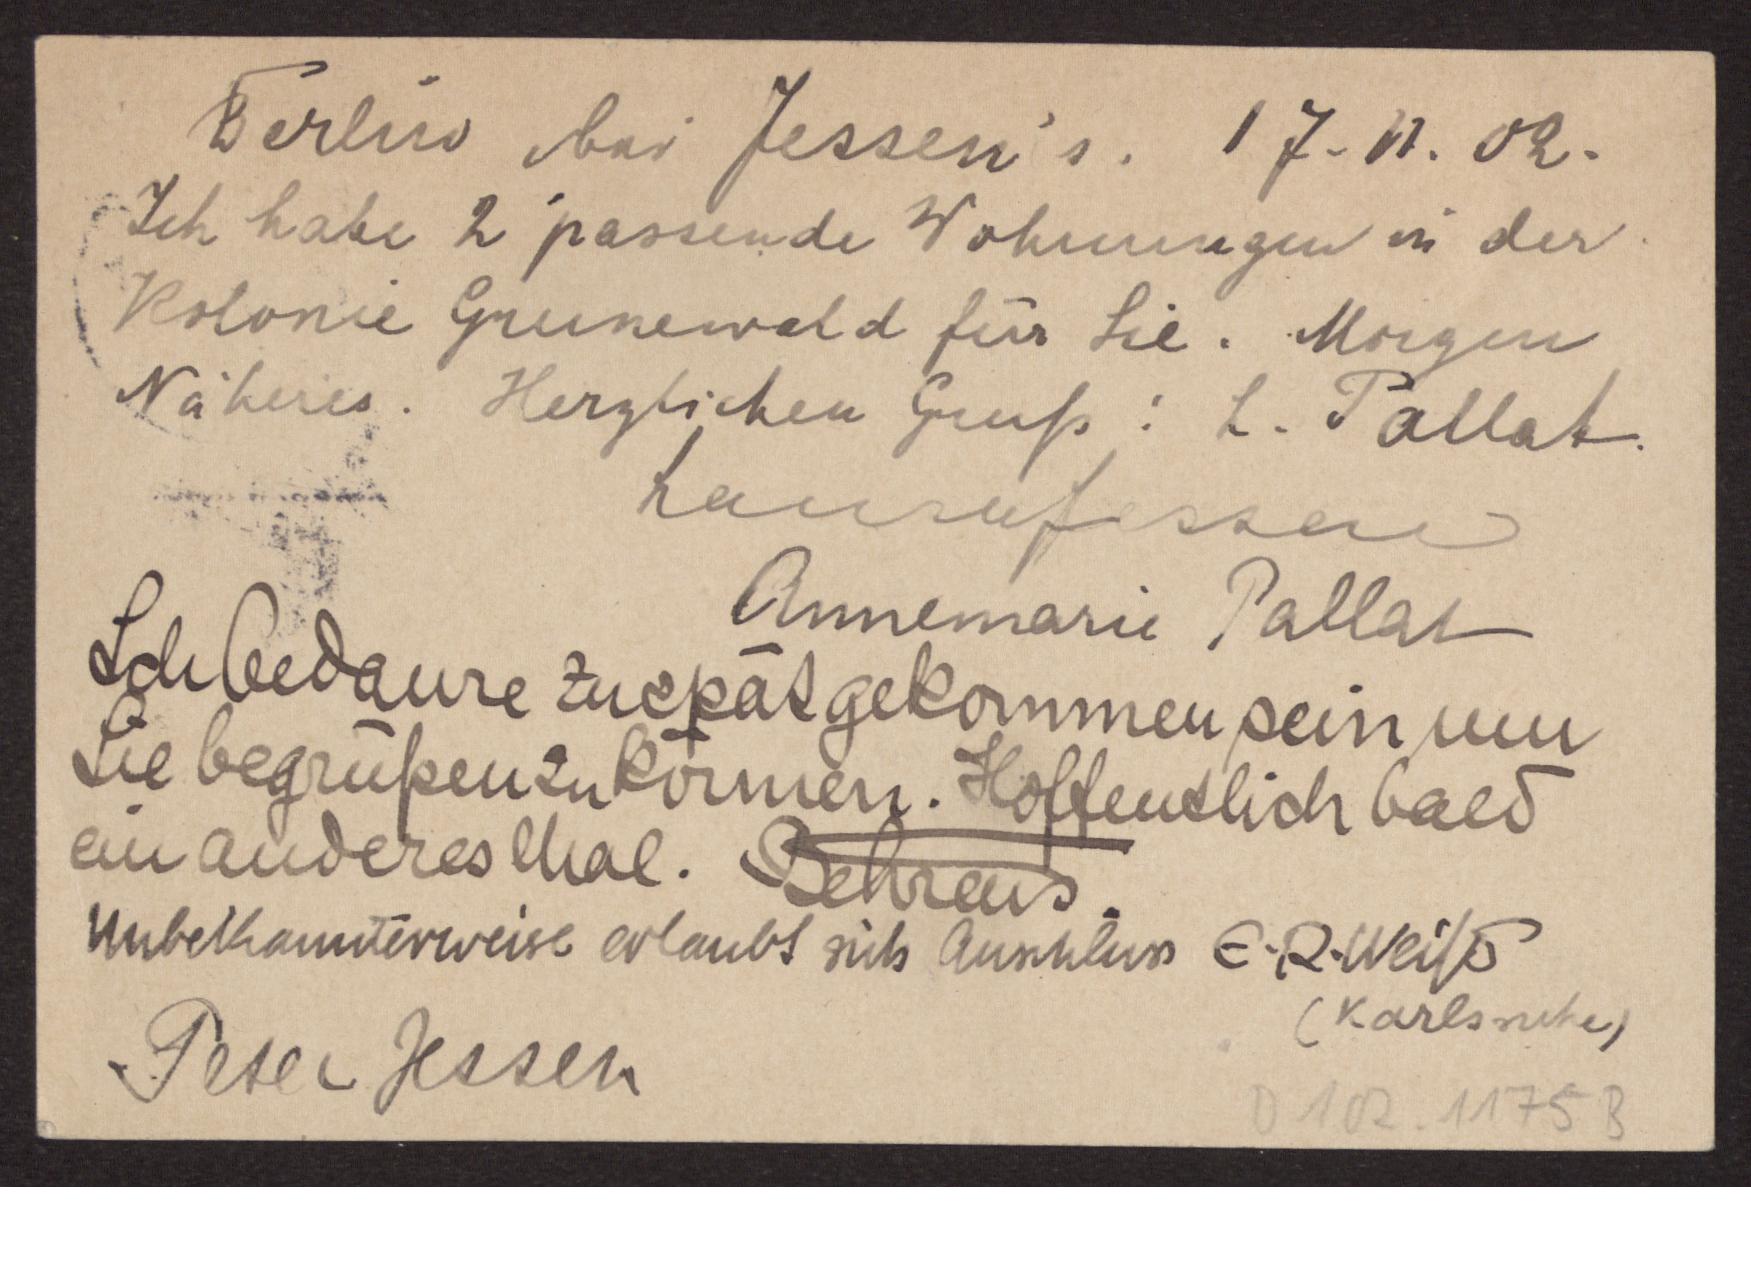 Berlin bei Jessen's. 17. 11. 02.
Ich habe 2 passende Wohnungen in der
Kolonie Grunewald für Sie. Morgen
Näheres. Herzlichen Gruß: L. Pallat.
Laura Jessen
Annemarie Pallat
Ich bedaure zu spät gekommen sein um
Sie begrüßen zu können. Hoffentlich bald
ein anderes Mal. Behrens.
Unbekannterweise erlaubt sich Anschluss E. R. Weiß
(Karlsruhe)
Peter Jessen
D 102. 1175 B